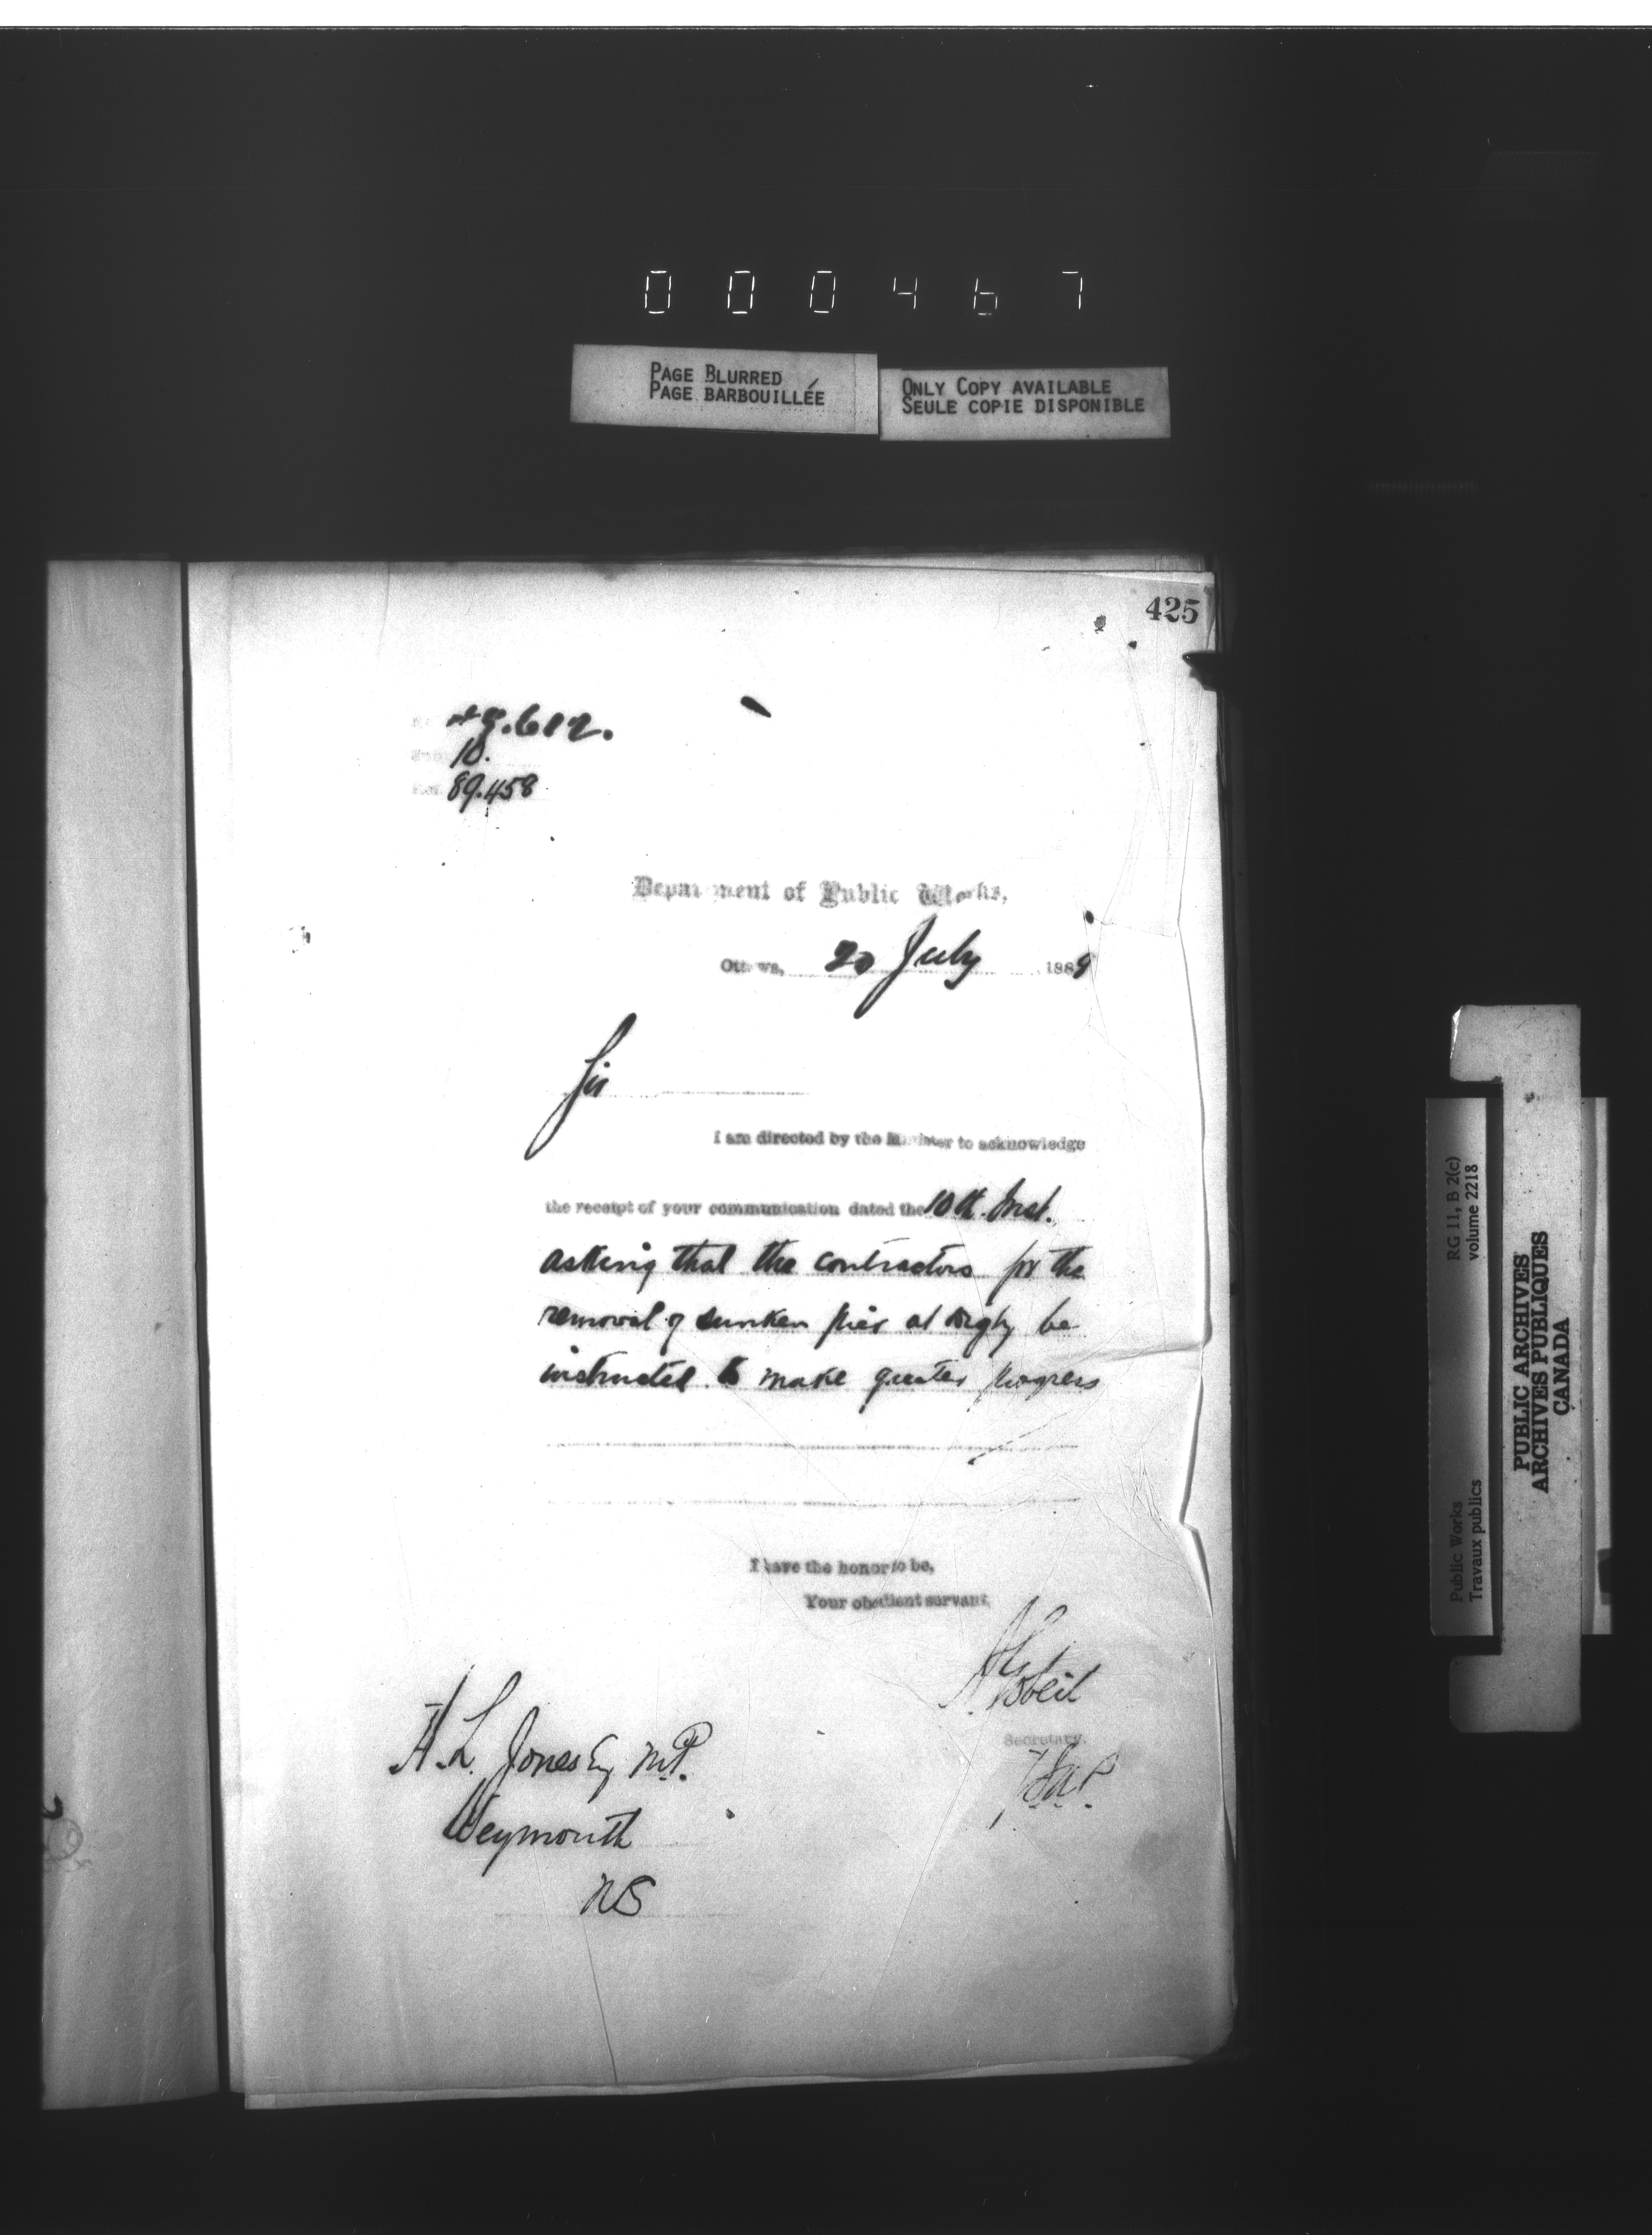 000467
PAGE BLURRED
PAGE BARBOUILLÉE
ONLY COPY AVAILABLE
SEULE COPIE DISPONIBLE
425
10.
89.458
Department of Public Works,
Ottawa, 20 July 1889
Sir
I am directed by the Minister to acknowledge
the receipt of your communication dated the 10th Inst.
asking that the contractors for the
removal of sunken pier at Digby be
instructed to make greater progress
I have the honor to be,
Your obedient servant,
A Gobeil
Secretary.
H. L. Jones Esq M.P.
Weymouth
NS
RG 11, B 2(c)
volume 2218
Public Works
Travaux publics
PUBLIC ARCHIVES
ARCHIVES PUBLIQUES
CANADA